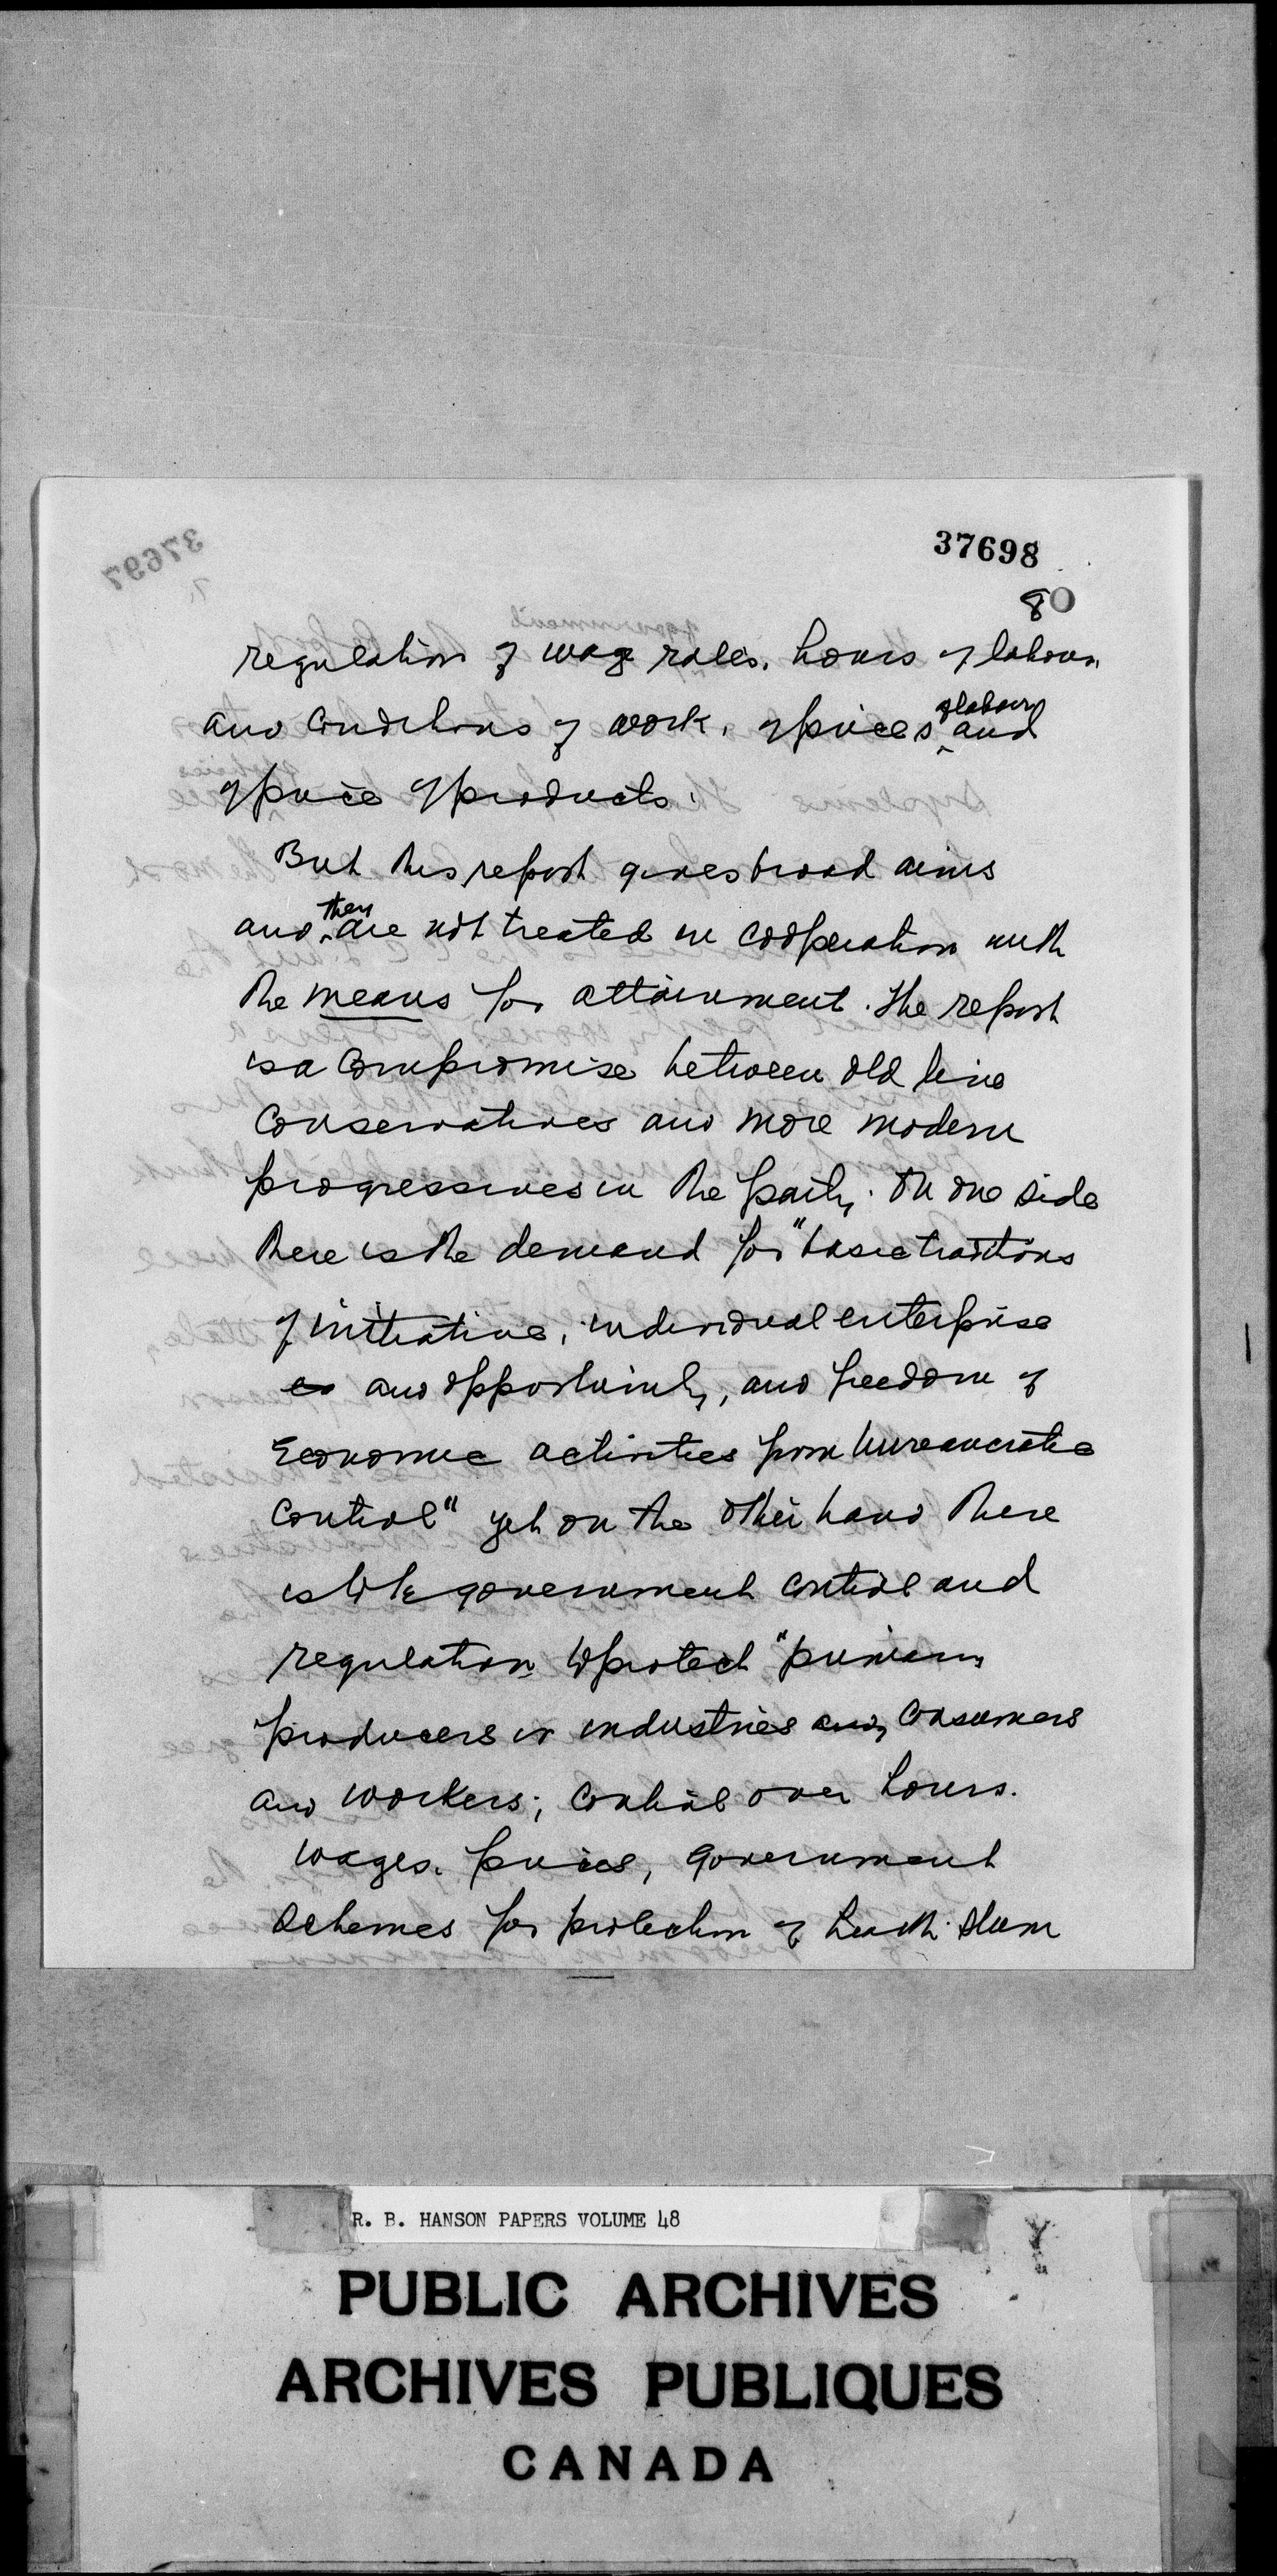 37698
37697
8
regulation of wage rates, hours of labour,
and conditions of work, of prices of labour and
of price of products.
But this report gives broad aims
and they are not treated in cooperation with
the means for attainment. The report
is a compromise between old line
Conservatives and more modern
progressives in the party. On one side
there is the demand for "basic traditions
of initiative, individual enterprise
and opportunity, and freedom of
Economic activities from bureaucratic
control" yet on the other hand there
is to be government control and
regulation to protect "primary
producers in industries and, consumers
and workers; control over hours.
wages. prices, government
schemes for protection of health. slum
R. B. HANSON PAPERS VOLUME 48
PUBLIC ARCHIVES
ARCHIVES PUBLIQUES
CANADA